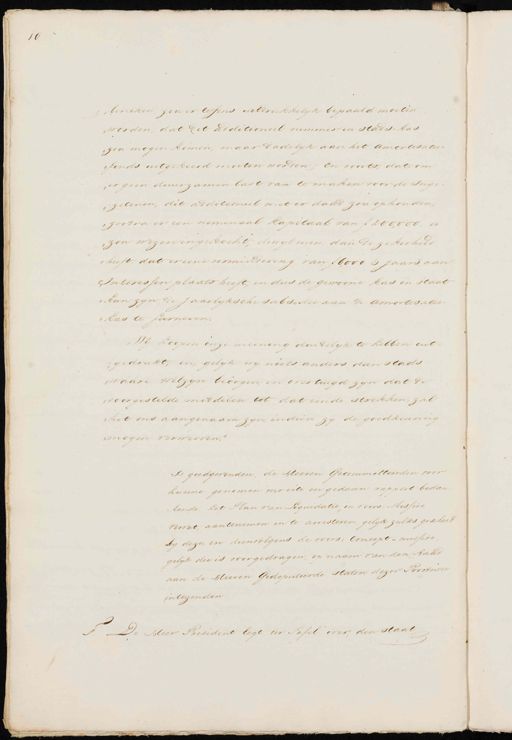 10
zou er tessens uitdrukkelyk bepaald moeten
worden, dat dit additioneel nummer in stads kas
zou mogen komen, maar dadelyk aan het Amortisatie
fonds uitgekeerd moeten worden, En voorts, dat om
er geen duurzamen last van te maken voor de Inge-
zetenen, dit additioneel met er daad zou ophouden
zoodra er een nominaal kapitaal van ƒ 200000. –
zou wezen ingekocht, dewyl men dan de zekerheid
heeft dat er eene vermindering van ƒ 6000 's jaars aan
Interessen plaats heeft, en dus de gewone kas in staat
kan zyn de jaarlyksche subsidie aan de Amortisatie
kas te furneren.
Wy hopen onze meening duidelyk te hebben uit-
gedrukt, en gelyk wy niets anders dan stads
waare welzyn beoogen en overtuigd zyn dat de
voorgestelde middelen tot dat einde strekken, zal
het ons aangenaam zyn indien zy de goedkeuring
mogen verwerven.
Is goedgevonden, de Heeren Gecommitteerden voor
hunne genomen moeite en gedaan rapport bedan-
kende het Plan van Liquidatie en Missive
aantenemen en te arresteren gelyk zulks geschiedt
by deze en dienvolgens de Concept-missive,
gelyk die is voorgedragen, in naam van den Raad
aan de Heeren Gedeputeerde staten dezer Provincie
intezenden
De Heer President legt ter Tafel over, den staat